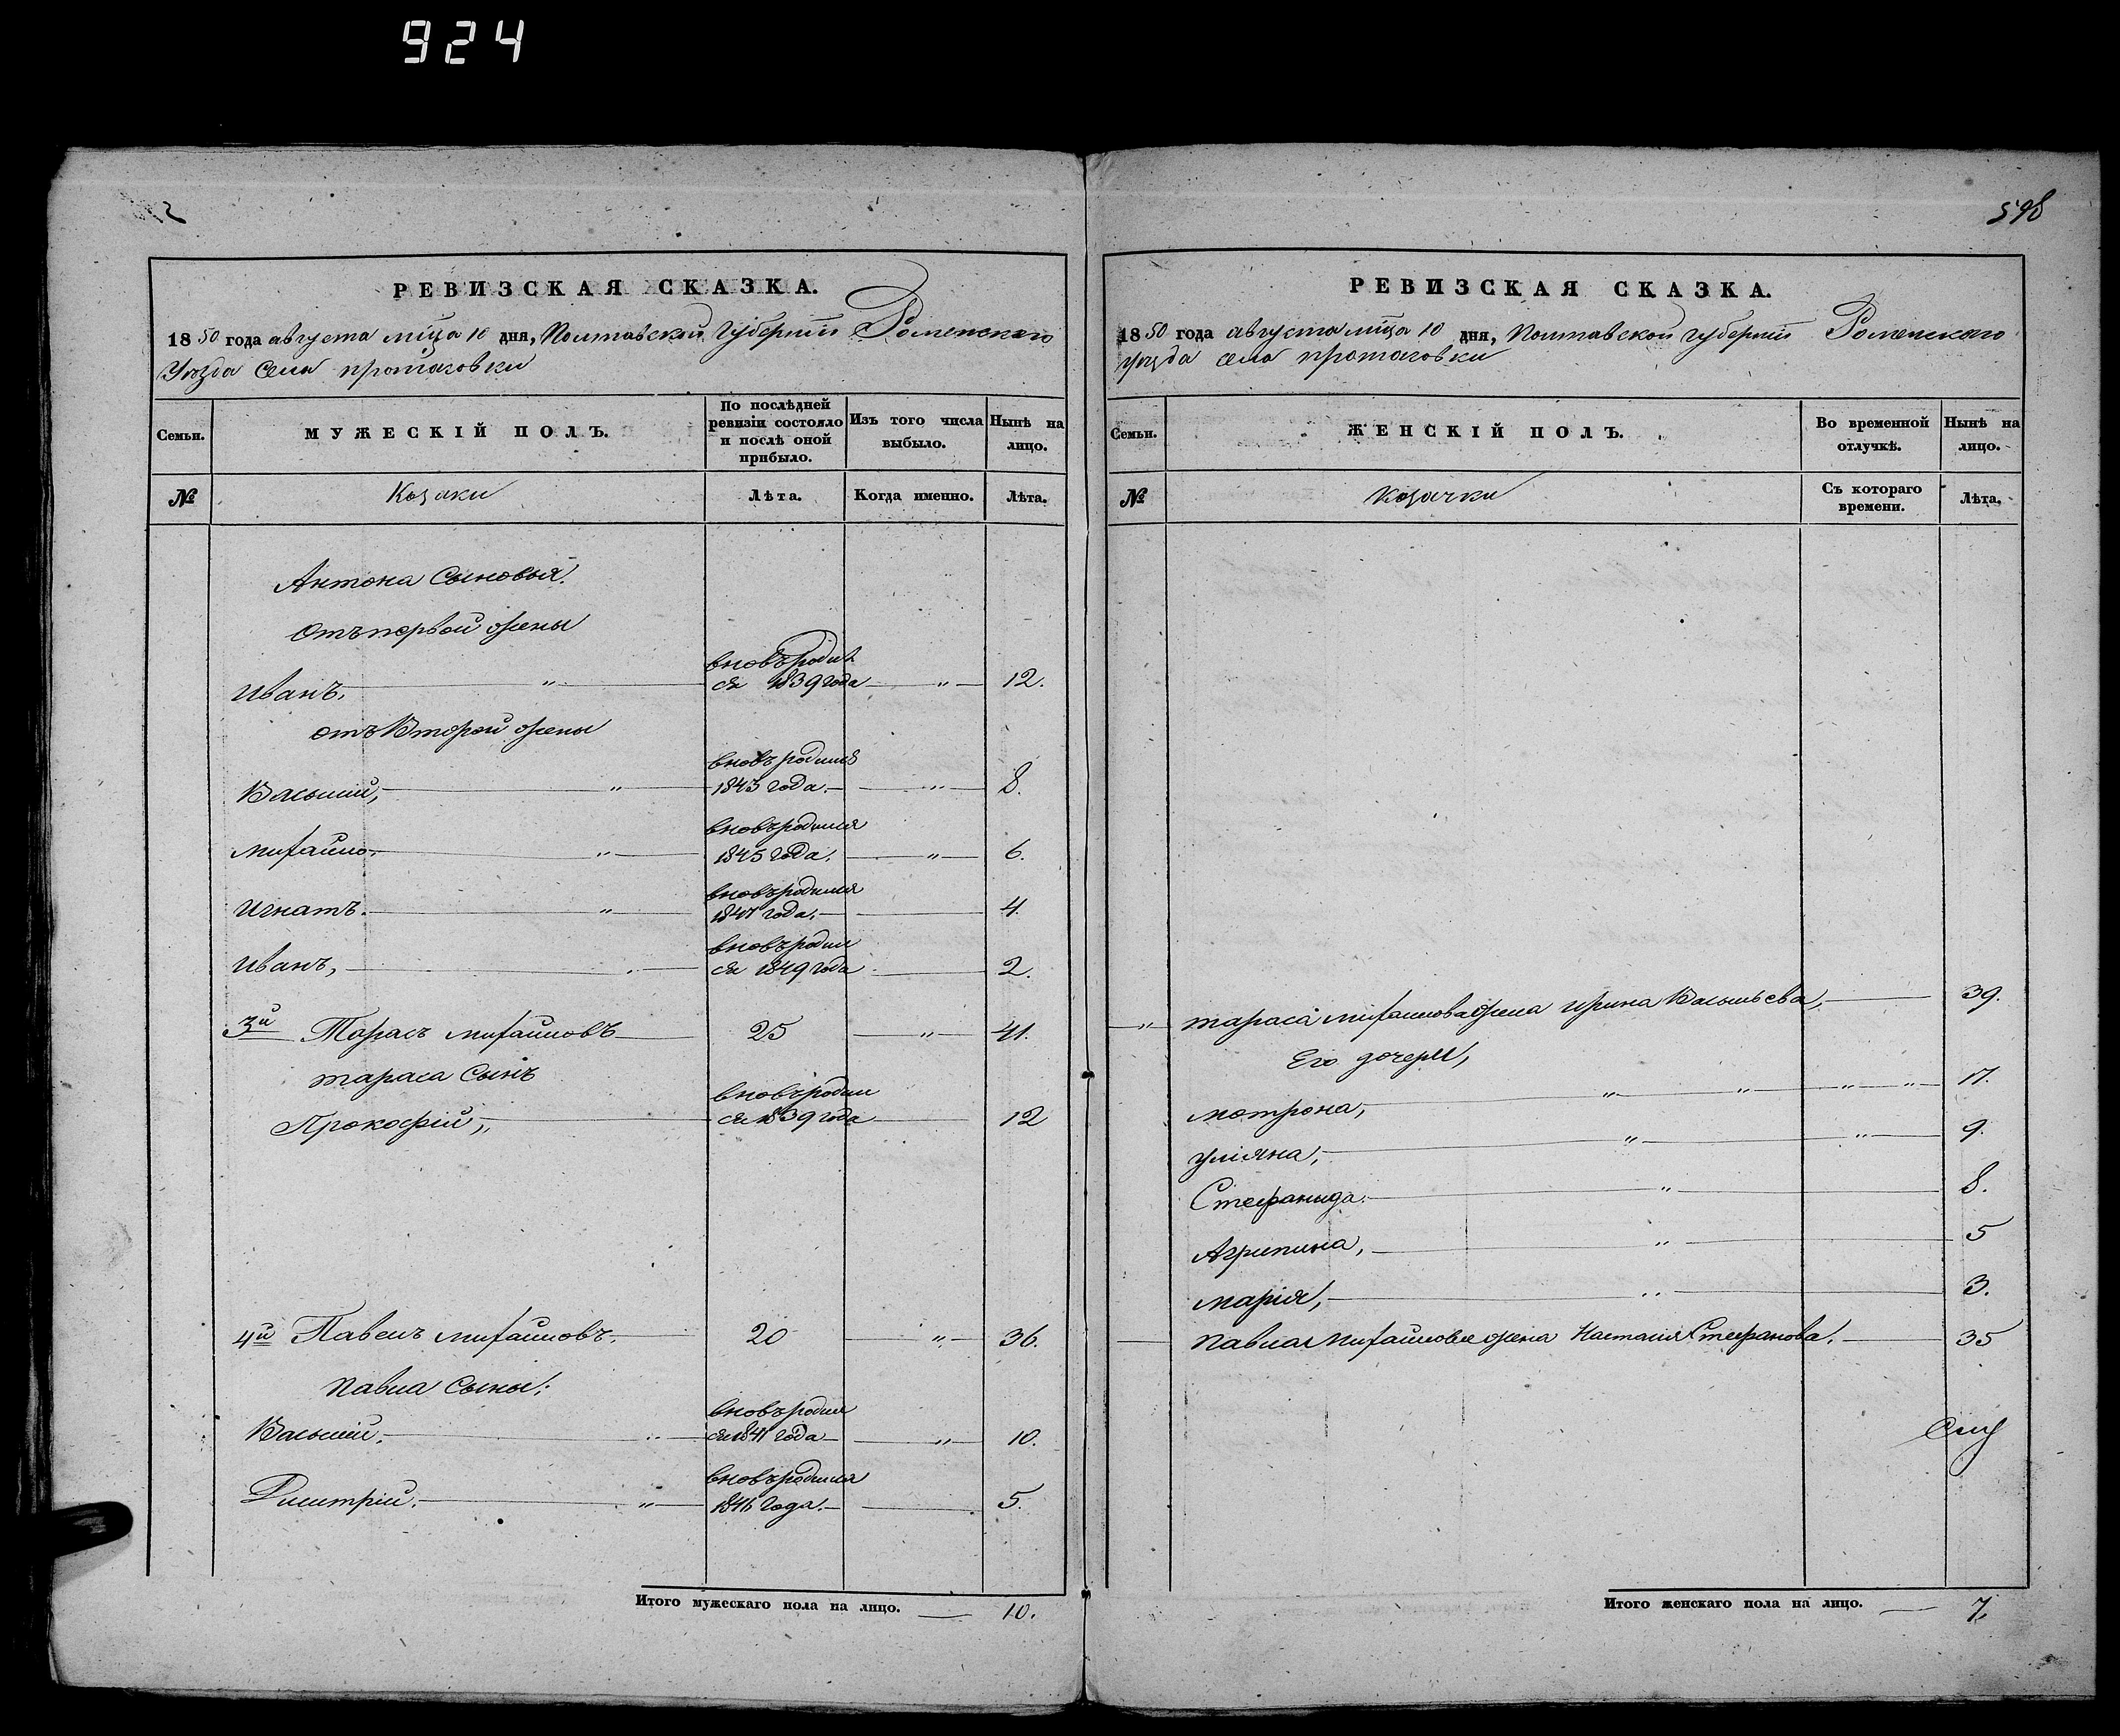 924
598
РЕВИЗСКАЯ СКАЗКА.
1850 года августа мĩца 10 дня, Полтавской Губернiи Роменскаго
Уѣзда Села протасовки
Семьи.
МУЖЕСКІЙ ПОЛЪ.
По послѣдней ревизіи состояло и послѣ оной прибыло.
Изъ того числа выбыло.
Нынѣ на лицо.
№
Козаки
Лѣта.
Когда именно.
Лѣта.
Антона Сыновья.
Отъ первой жены
Иванъ, " вновь родил
ся 1839 года " 12.
отъ Второй жены
Василий, " вновь родился
1843 года. " 8.
Михайло, " вновь родился
1845 года. " 6.
Игнатъ. " вновь родился
1847 года. 4.
Иванъ, вновь родил
ся 1849 года 2.
3й Тарасъ Михайловъ 25 " 41.
Тараса Сынъ
Прокофій, вновь родил
ся 1839 года 12
4й Павелъ Михайловъ. 20 " 36.
Павла Сыны:
Василий. вновь родил
ся 1841 года " 10.
Димитрій. " вновь родился
1846 года. 5.
Итого мужескаго пола на лицо. 10.
РЕВИЗСКАЯ СКАЗКА.
1850 года августа мĩца 10 дня, Полтавской губерніи Роменскаго
уѣзда села протасовки
Семьи.
ЖЕНСКІЙ ПОЛЪ.
Во временной отлучкѣ.
Нынѣ на лицо.
№
Козачки
Съ котораго времени.
Лѣта.
" Тараса Михайлова жена Ирина Васильева, 39.
Его дочери,
Мотрона, " " " " 17.
Уліяна, " " 9.
Стефанида. " 8.
Агрипина, " 5
Марія, " 3.
Павла Михайлова жена Настасія Стефанова. 35
Итого женскаго пола на лицо. 7.